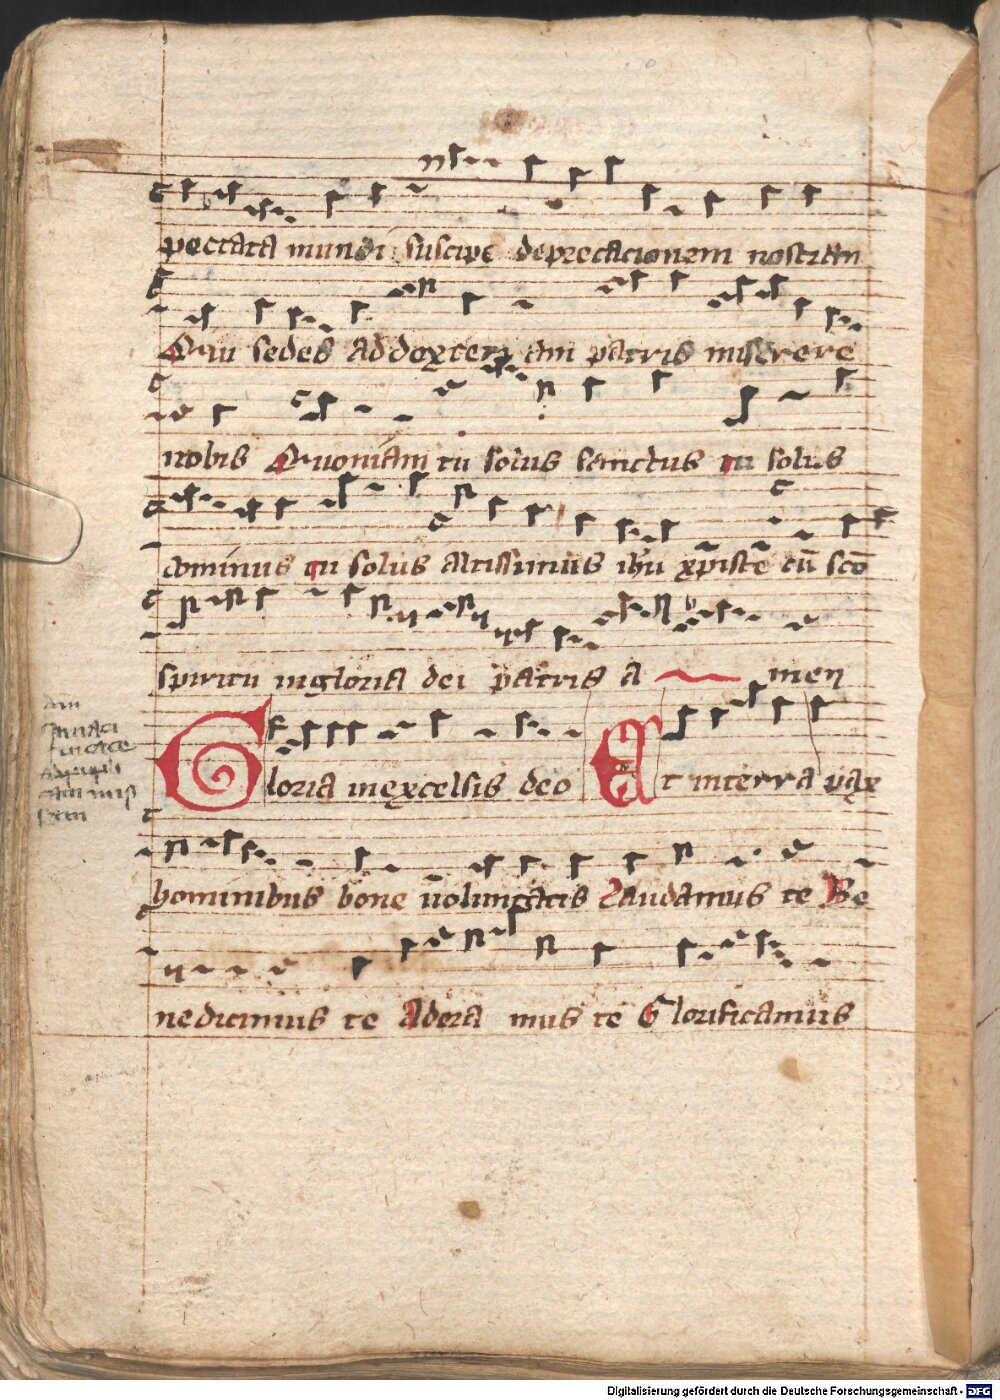 peccata mundi suscipe deprecacionem nostram
Qui sedes ad dexteram patris miserere
nobis Quoniam tu solus sanctus tu solus
dominus tu solus altissimus ihu xpiste cū sctō
spiritu in gloria dei patris a men
Gloria in excelsis deo Et in terra pax
hominibus bone volūntatis Laudamus te Be
nedicimus te Adora mus te Glorificamus
Digitalisierung gefördert durch die Deutsche Forschungsgemeinschaft - DFG